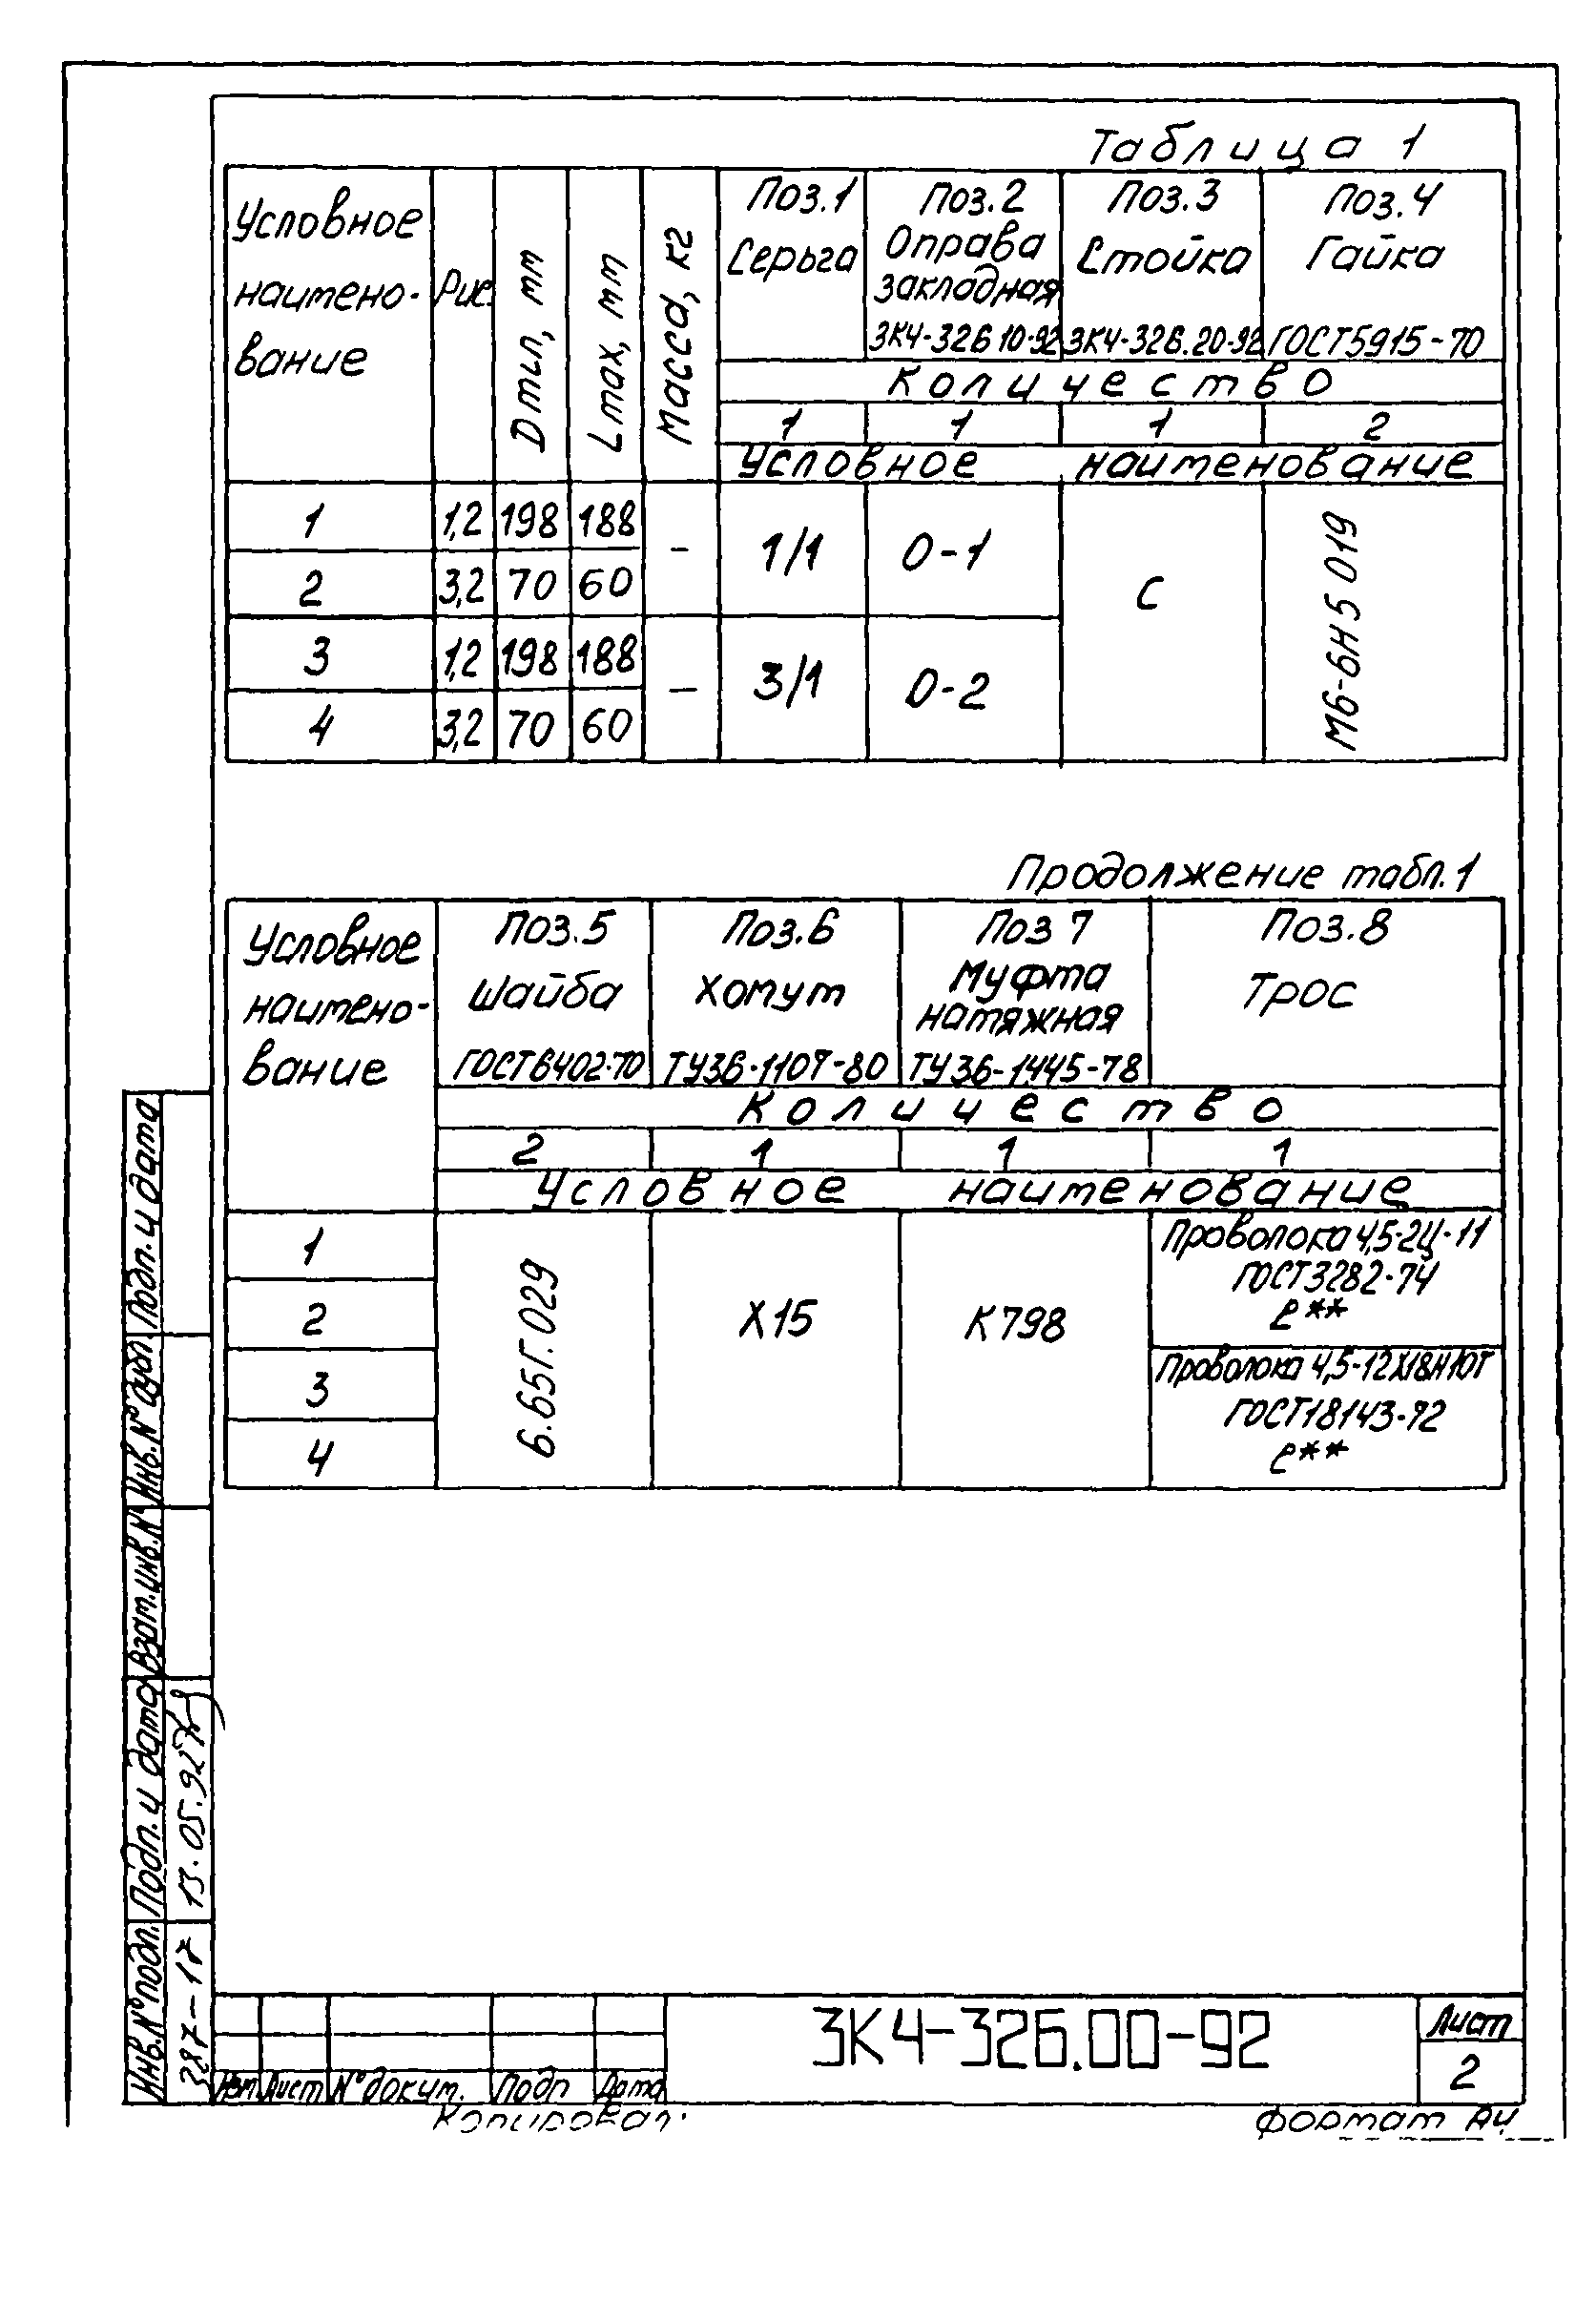 Таблица 1
Условное наимено-вание
Рис.
Dmin, mm
Lmax, mm
Масса, кг
Поз.1 Серьга
Поз.2 Оправа закладная ЗК4-326 10-92
Поз.3 Стойка ЗК4-326.20-92
Поз.4 Гайка ГОСТ5915-70
Количество
1 1 1 2
Условное наименование
1 1,2 198 188 – 1/1 О-1 С М6-6Н5 019
2 3,2 70 60
3 1,2 198 188 – 3/1 О-2
4 3,2 70 60
Продолжение табл.1
Условное наимено-вание
Поз.5 Шайба ГОСТ6402-70
Поз.6 Хомут ТУ36-1107-80
Поз 7 Муфта натяжная ТУ36-1445-78
Поз.8 Трос
Количество
2 1 1 1
Условное наименование
1
2
3
4
6.65Г.029
Х15
К798
Проволока 4,5-2Ц-11
ГОСТ3282-74
ℓ**
Проволока 4,5-12Х18Н10Т
ГОСТ18143-72
ℓ**
Подп. и дата
Инв.№ дубл
Взам.инв.№
Подп. и дата
13.05.92г
Инв.№ подп.
387-17
Изм. Лист № докум. Подп Дата
ЗК4-326.00-92
Лист
2
Копировал.
формат А4